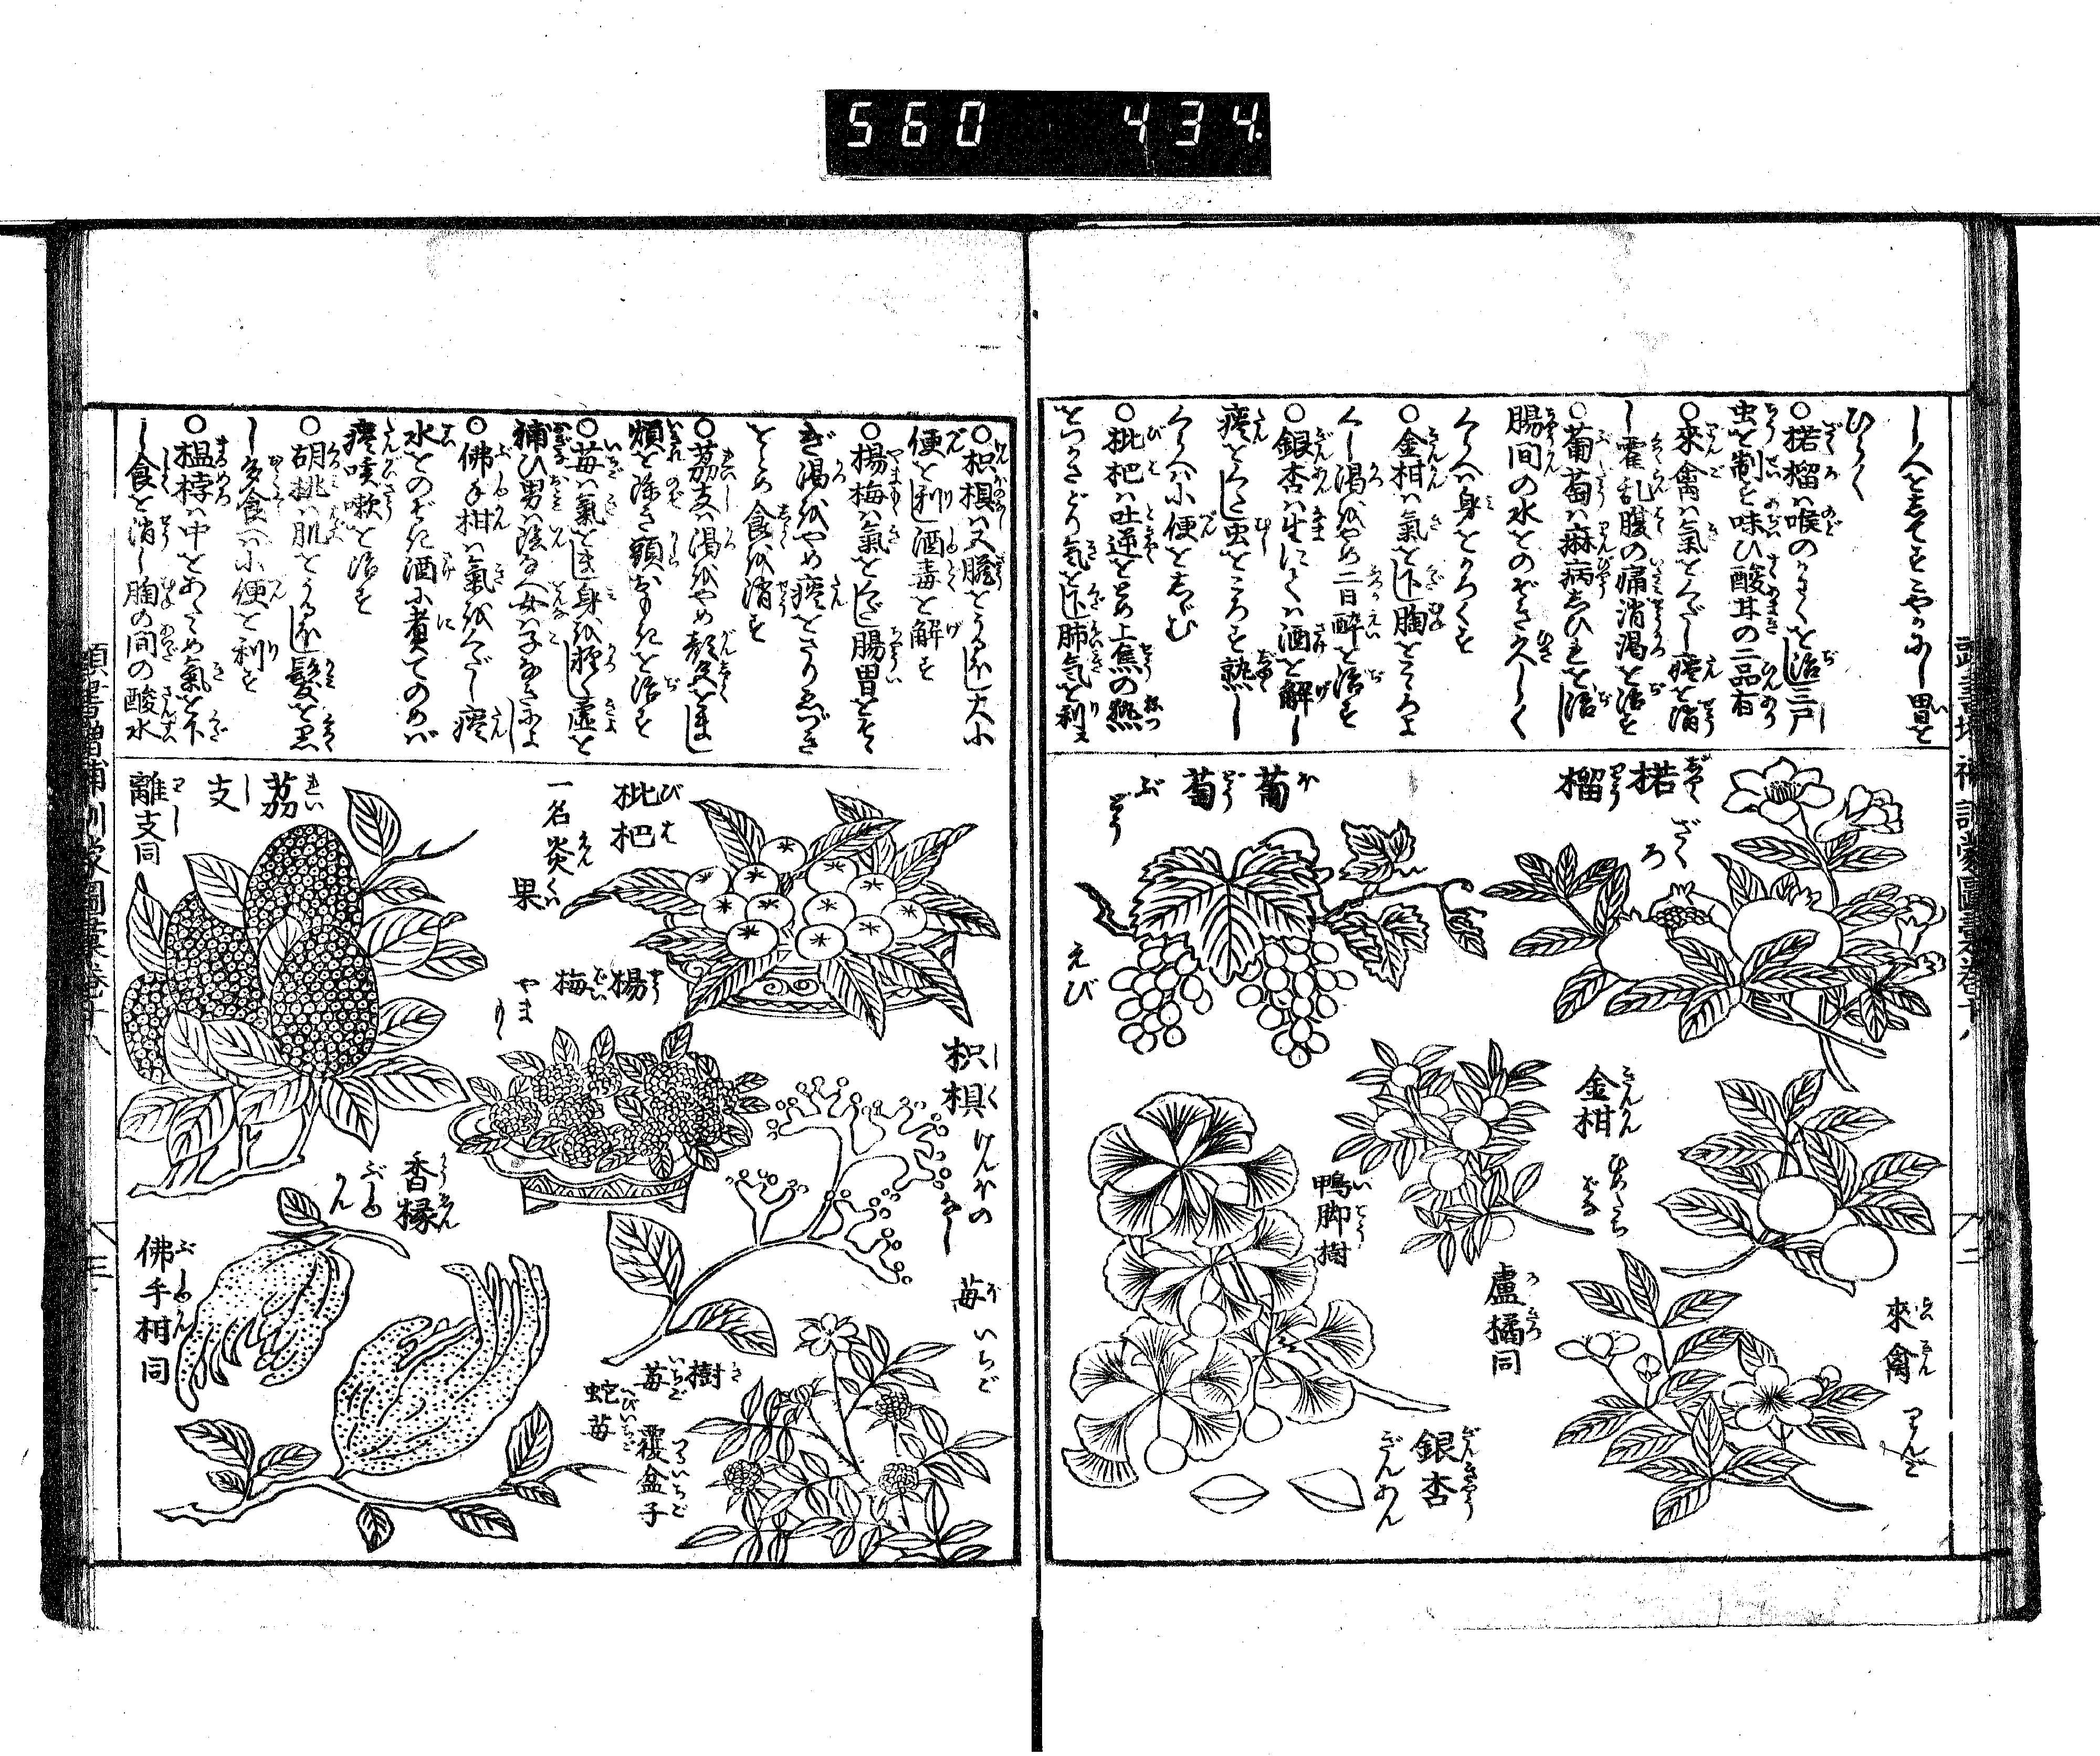 560 434.
し人をしてすこやかにし胃を
ひらく
○楉榴ハ喉のかわくを治し三尸
虫を制す味ひ酸甘の二品有
○來禽ハ氣をくだし痰を消
し霍乱腹の痛消渇を治す
○葡萄ハ麻病しひれを治し
腸間の水をのぞき久しく
くらへハ身をかろくす
○金柑ハ氣を下し胸をこゝろよ
くし渇をやめ二日醉を治す
○銀杏ハ生にてハ酒を解し
痰をくだし虫をころす熟し
くらへハ小便をしゞむ
○枇杷ハ吐逆をとめ上焦の熱
をつかさどり氣を下し肺気を利す
楉榴
ざくろ
葡萄
ぶどう
えび
金柑
ひめたちばな
盧橘同
來禽
りんご
鴨脚樹
銀杏
ぎんあん
○枳椇ハ五臓をうるほし大小
便を利し酒毒を解す
○楊梅ハ氣をくだし腸胃をそゝ
ぎ渇をやめ痰をさりゑづき
をとめ食を消す
○茘支ハ渇をやめ顏色をまし
煩を除き頭おもきを治す
○苺ハ氣をまし身を軽く虚を
補ひ男ハ陰つよく女ハ子をなさしむ
○佛手柑ハ氣をくだし痰
水をのぞき酒に煮てのめバ
痰咳嗽を治す
○胡桃ハ肌をうるほし髪を黒く
し多食ハ小便を利す
○榲桲ハ中をあたゝめ氣を下
し食を消し胸の間の酸水
枇杷
一名炎果
茘支
離支同
楊梅
やまもゝ
枳椇
けんほのなし
苺
いちご
樹苺
蛇苺
覆盆子
香橼
ぶしゆかん
佛手柑同
頭書増補訓蒙圖彙卷十八
三